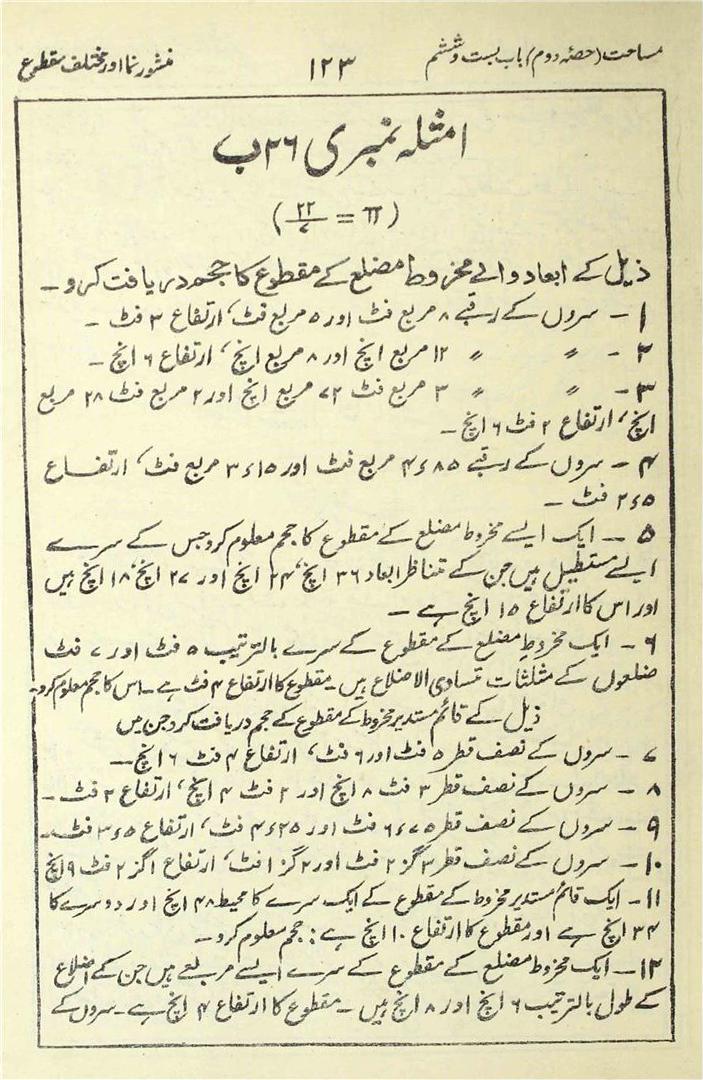 مساحت (حصّہ دوم) باب بست و ششم
۱۲۳
منشور نما اور مختلف مقطوع
امثلہ نمبری ۲۶ ب
(π = ۲۲/۷)
ذیل کے ابعاد والے مخروط مضلع کے مقطوع کا حجم دریافت کرو ۔
۱ ۔ سروں کے رقبے ۸ مربع فٹ اور ۵ مربع فٹ، ارتفاع ۳ فٹ ۔
۲ ۔ " " ۱۲ مربع انچ اور ۸ مربع انچ، ارتفاع ۶ انچ ۔
۳ ۔ " " ۳ مربع فٹ ۷۲ مربع انچ اور ۲ مربع فٹ ۲۸ مربع
انچ، ارتفاع ۲ فٹ ۶ انچ ۔
۴ ۔ سروں کے رقبے ۴٫۸۵ مربع فٹ اور ۳٫۱۵ مربع فٹ، ارتفاع
۲٫۵ فٹ ۔
۵ ۔ ایک ایسے مخروط مضلع کے مقطوع کا حجم معلوم کرو جس کے سرے
ایسے مستطیل ہیں جن کے متناظر ابعاد ۳۶ انچ، ۲۴ انچ اور ۲۷ انچ، ۱۸ انچ ہیں
اور اس کا ارتفاع ۱۵ انچ ہے ۔
۶ ۔ ایک مخروطِ مضلع کے مقطوع کے سرے بالترتیب ۵ فٹ اور ۷ فٹ
ضلعوں کے مثلثات متساوی الاضلاع ہیں ۔ مقطوع کا ارتفاع ۴ فٹ ہے ۔ اس کا حجم معلوم کرو ۔
ذیل کے قائم مستدیر مخروط کے مقطوع کے حجم دریافت کرو جن میں
۷ ۔ سروں کے نصف قطر ۵ فٹ اور ۶ فٹ، ارتفاع ۴ فٹ ۶ انچ ۔
۸ ۔ سروں کے نصف قطر ۳ فٹ ۸ انچ اور ۲ فٹ ۴ انچ، ارتفاع ۲ فٹ ۔
۹ ۔ سروں کے نصف قطر ۶٫۷۵ فٹ اور ۴٫۲۵ فٹ، ارتفاع ۳٫۵ فٹ ۔
۱۰ ۔ سروں کے نصف قطر ۳ گز ۲ فٹ اور ۲ گز ۱ فٹ، ارتفاع ۱ گز ۲ فٹ ۹ انچ
۱۱ ۔ ایک قائم مستدیر مخروط کے مقطوع کے ایک سرے کا محیط ۴۸ انچ اور دوسرے کا
۳۴ انچ ہے اور مقطوع کا ارتفاع ۱۰ انچ ہے : حجم معلوم کرو ۔
۱۲ ۔ ایک مخروط مضلع کے مقطوع کے سرے ایسے مربعے ہیں جن کے اضلاع
کے طول بالترتیب ۶ انچ اور ۸ انچ ہیں ۔ مقطوع کا ارتفاع ۴ انچ ہے ۔ سروں کے